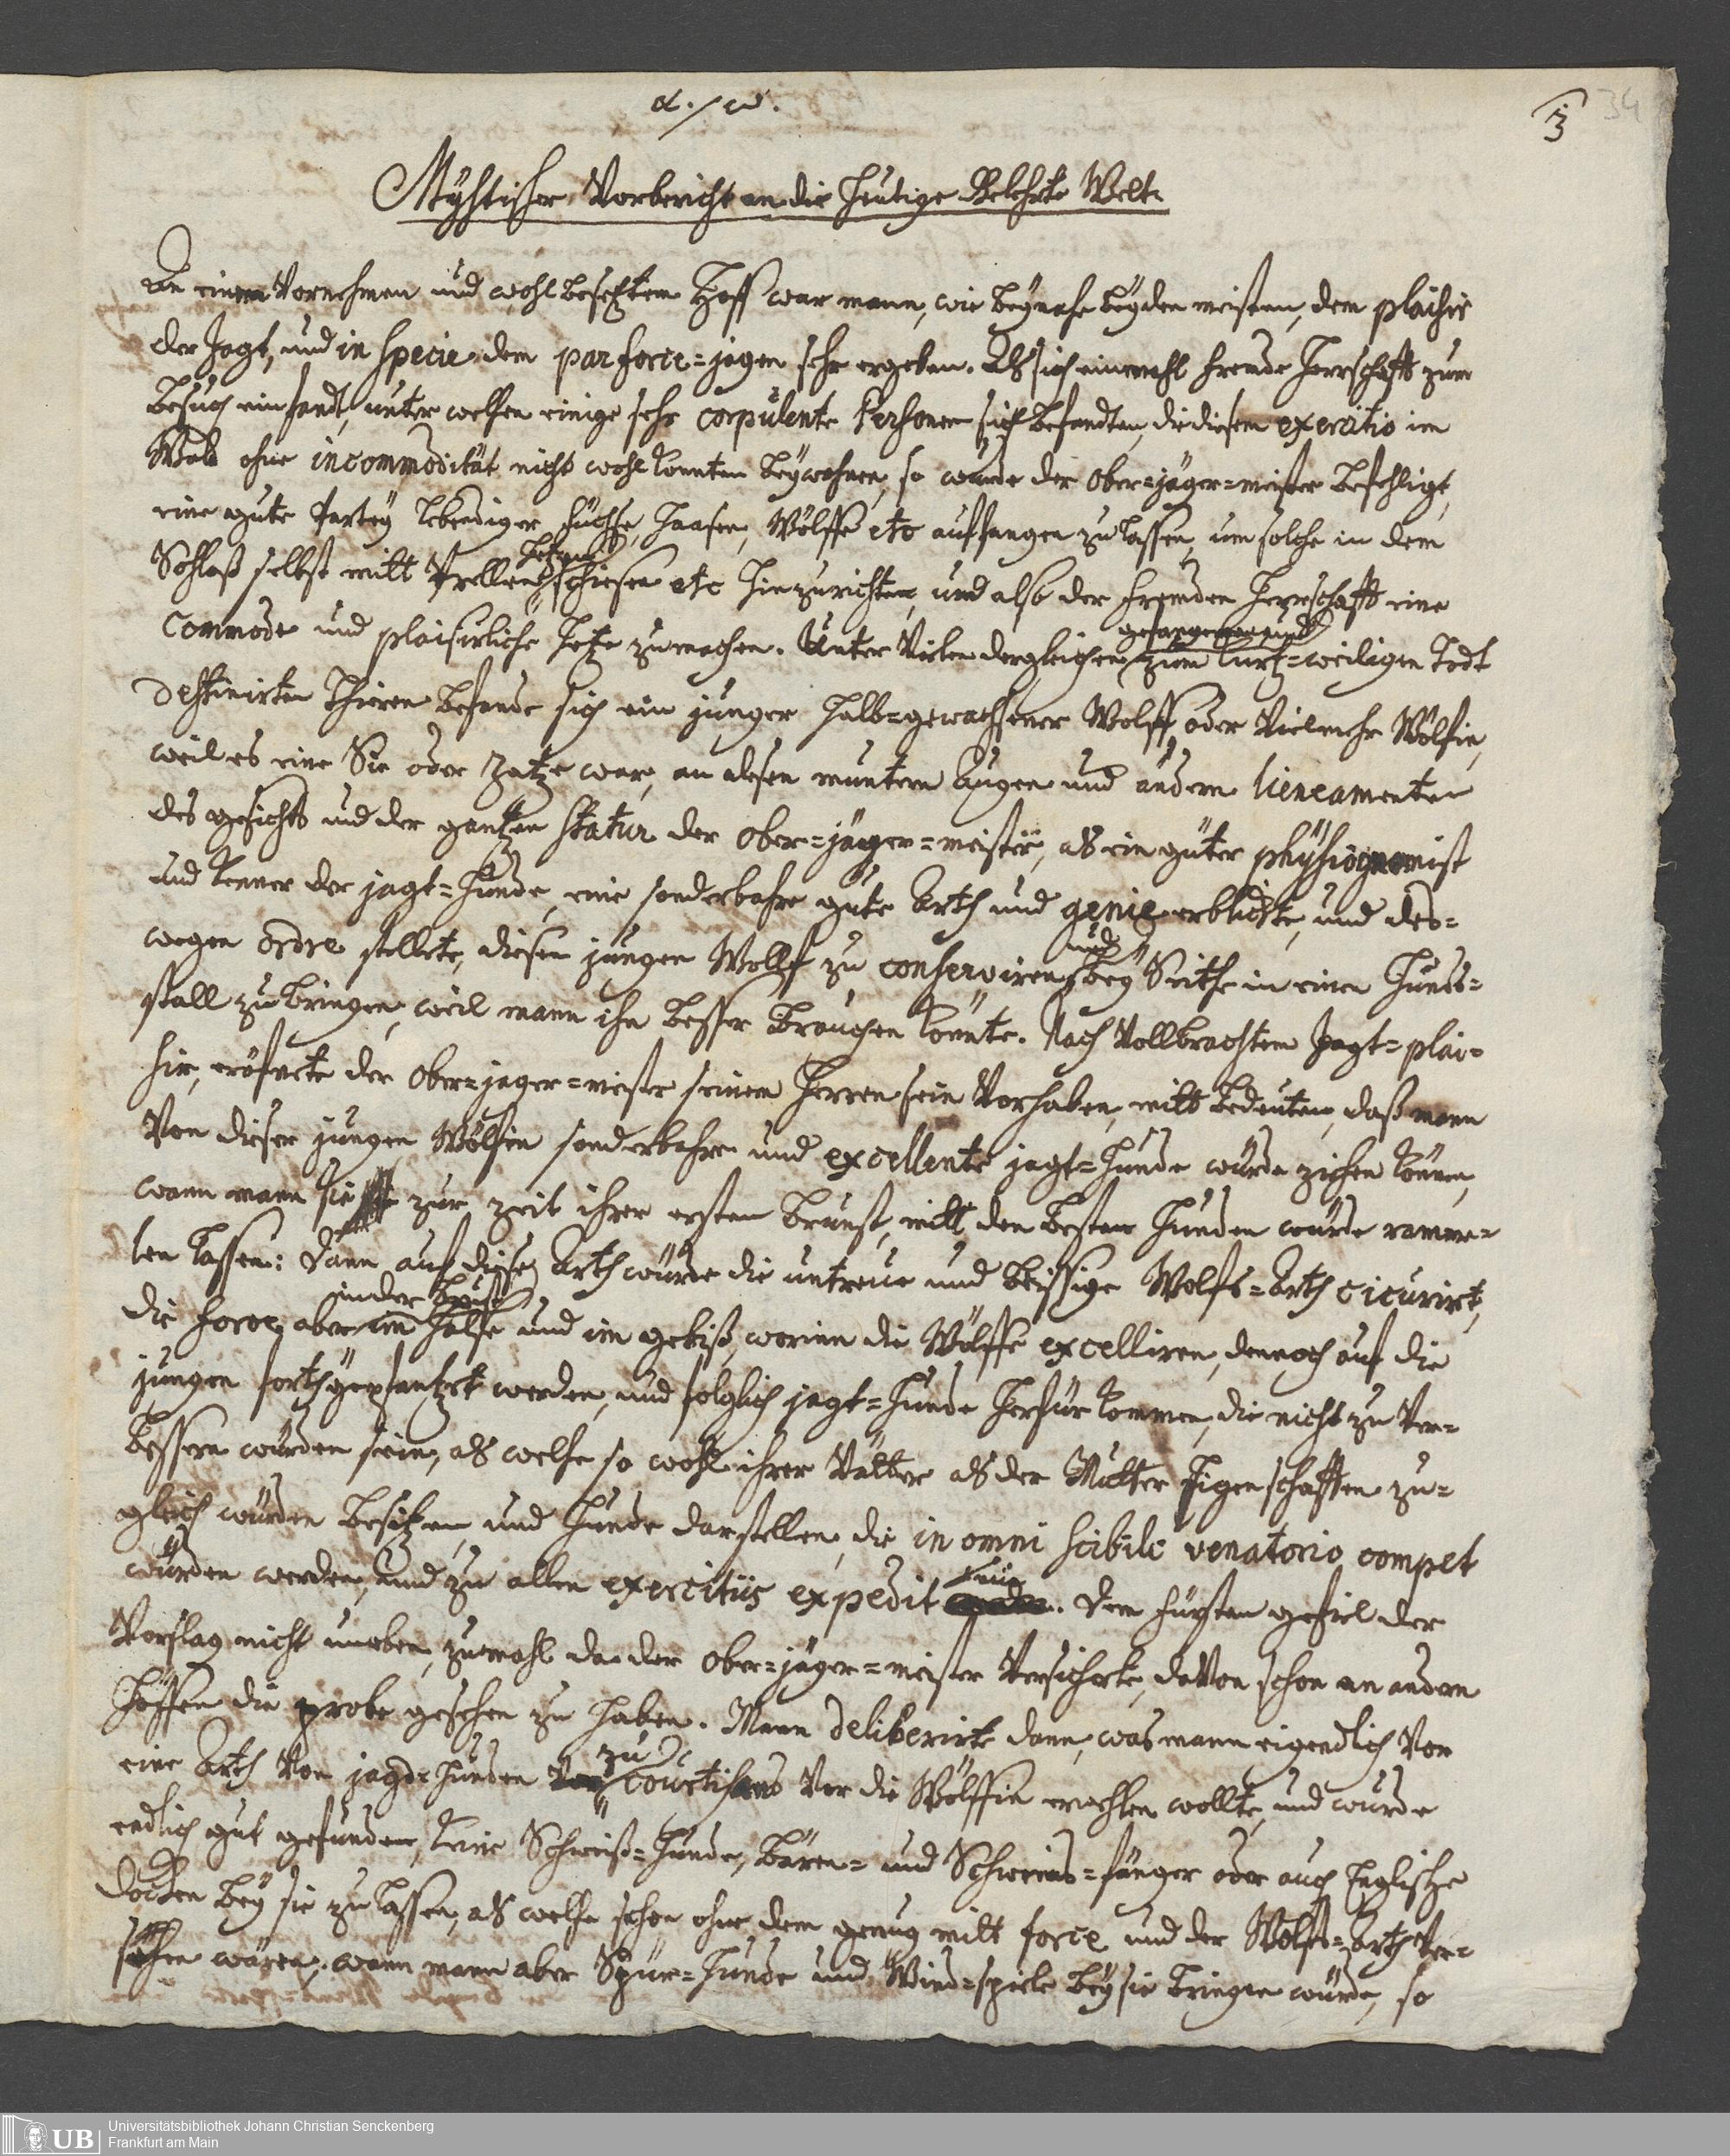 α./ω.
3
34
Mÿstischer Vorbericht an die heutige Gelehrte Welt.
An einem Vornehmen und wohl besetzten Hoff war mann, wie beÿnahe beÿ den meisten, dem plaisir
der Jagt, und in specie dem par force=jagen sehr ergeben. Als sich einmahl fremde Herrschafft zum
Besuch einfandt, unter welchen einige sehr corpulente Personen sich befandten, die diesem exercitio im
Wald ohne incommoditæt nicht wohl konnten beÿwohnen, so wurde der Ober=jäger=meister befehligt,
eine gute Parteÿ lebendiger Füchse, Haasen, Wölffe etc auffangen zu lassen, um solche in dem
Hetzen
Schloß selbst mitt Prellen, schiesen etc hinzurichten, und also der fremden Herrschafft eine
commode und plaisirliche Hetze zu machen. Unter Vielen dergleichen zum kurtz=weiligen Todt
gefangenen und
destinirten Thieren befande sich ein junger halb=gewachsener Wolff, oder Vielmehr Wölfin,
weil es eine Sie oder Zatze war, an dessen muntern Augen und andern lieneamenten
des gesichts und der gantzen statur der Ober=jäger=meister, als ein guter physiognomist
und kenner der jagt=Hunde, eine sonderbahre gute Arth und genie erblickte, und des=
und
wegen ordre stellete, diesen jungen Wolff zu conserviren, beÿ Seithe in einen Hunds=
stall zu bringen, weil mann ihn besser brauchen könnte. Nach Vollbrachtem Jagt=plai=
sir, eröfnete der Ober=jäger=meister seinem Herren sein Vorhaben, mitt bedeuten, daß mann
Von dieser jungen Wölfin sonderbahre und excellente jagt=Hunde würde ziehen können,
wann mann sie zur zeit ihrer ersten Brunst, mitt den besten Hunden würde ramme=
len lassen: dann auf diese Arth würde die untreue und beissige Wolfs=Arth cicurirt,
in der Brust
die force aber im Halse und im gebiß, worinn die Wölffe excelliren, dennoch auf die
jungen forthgepflantzet werden, und folglich jagt=Hunde herfür kommen, die nicht zu Ver=
bessern würden sein, als welche so wohl ihrer Vätter als der Mutter Eigenschafften zu=
gleich würden besitzen, und Hunde darstellen, die in omni scibili venatorio complet
würden werden, und zu allen exercitiis expedit sein. Dem Fürsten gefiel der
Vorslag nicht uneben, zumahl da der Ober=jäger=meister Versicherte, davon schon an andern
Höffen die probe gesehen zu haben. Mann deliberirte dann, was mann eigendlich Vor
zu
eine Arth Von jagd=Hunden courtisans Vor die Wölffin erwehlen wollte, und wurde
endlich gut gefunden, keine Schweiß=Hunde, Bären= und Schweins=fänger oder auch Englische
docken beÿ sie zu lassen, als welche schon ohne dem genug mitt force und der Wolfs=Arth Ver=
sehen wären; wann mann aber Spür=Hunde und Wind=spiele beÿ sie bringen würde, so
UB
Universitätsbibliothek Johann Christian Senckenberg
Frankfurt am Main